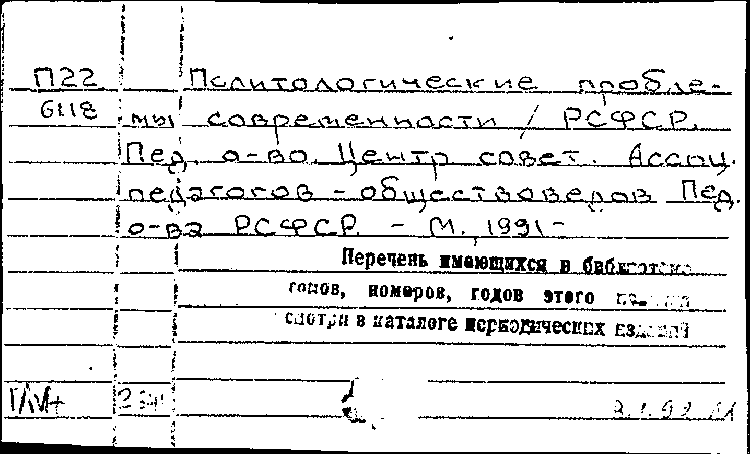 П22 Политологические пробле-
6118 мы современности / РСФСР.
Пед. о-во. Центр. совет. Ассоц.
педагогов-обществоведов Пед.
о-ва РСФСР. - М., 1991-
Перечень имеющихся в библиотеке
томов, номеров, годов этого издания
смотри в каталоге периодических изданий